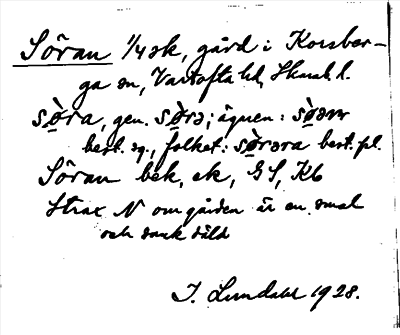 Söran 1/4 sk, gård i Korsber-
ga sn, Vartofta hd, Skarab. l.
sò̤ra, gen. sò̤rə; äguen: sò̤ənr
best. sg., folket: sò̤rəra best. pl.
Söran bek, ek, GS, Kb
Strax N om gården är en smal
och sank däld
J. Lundahl 1928.